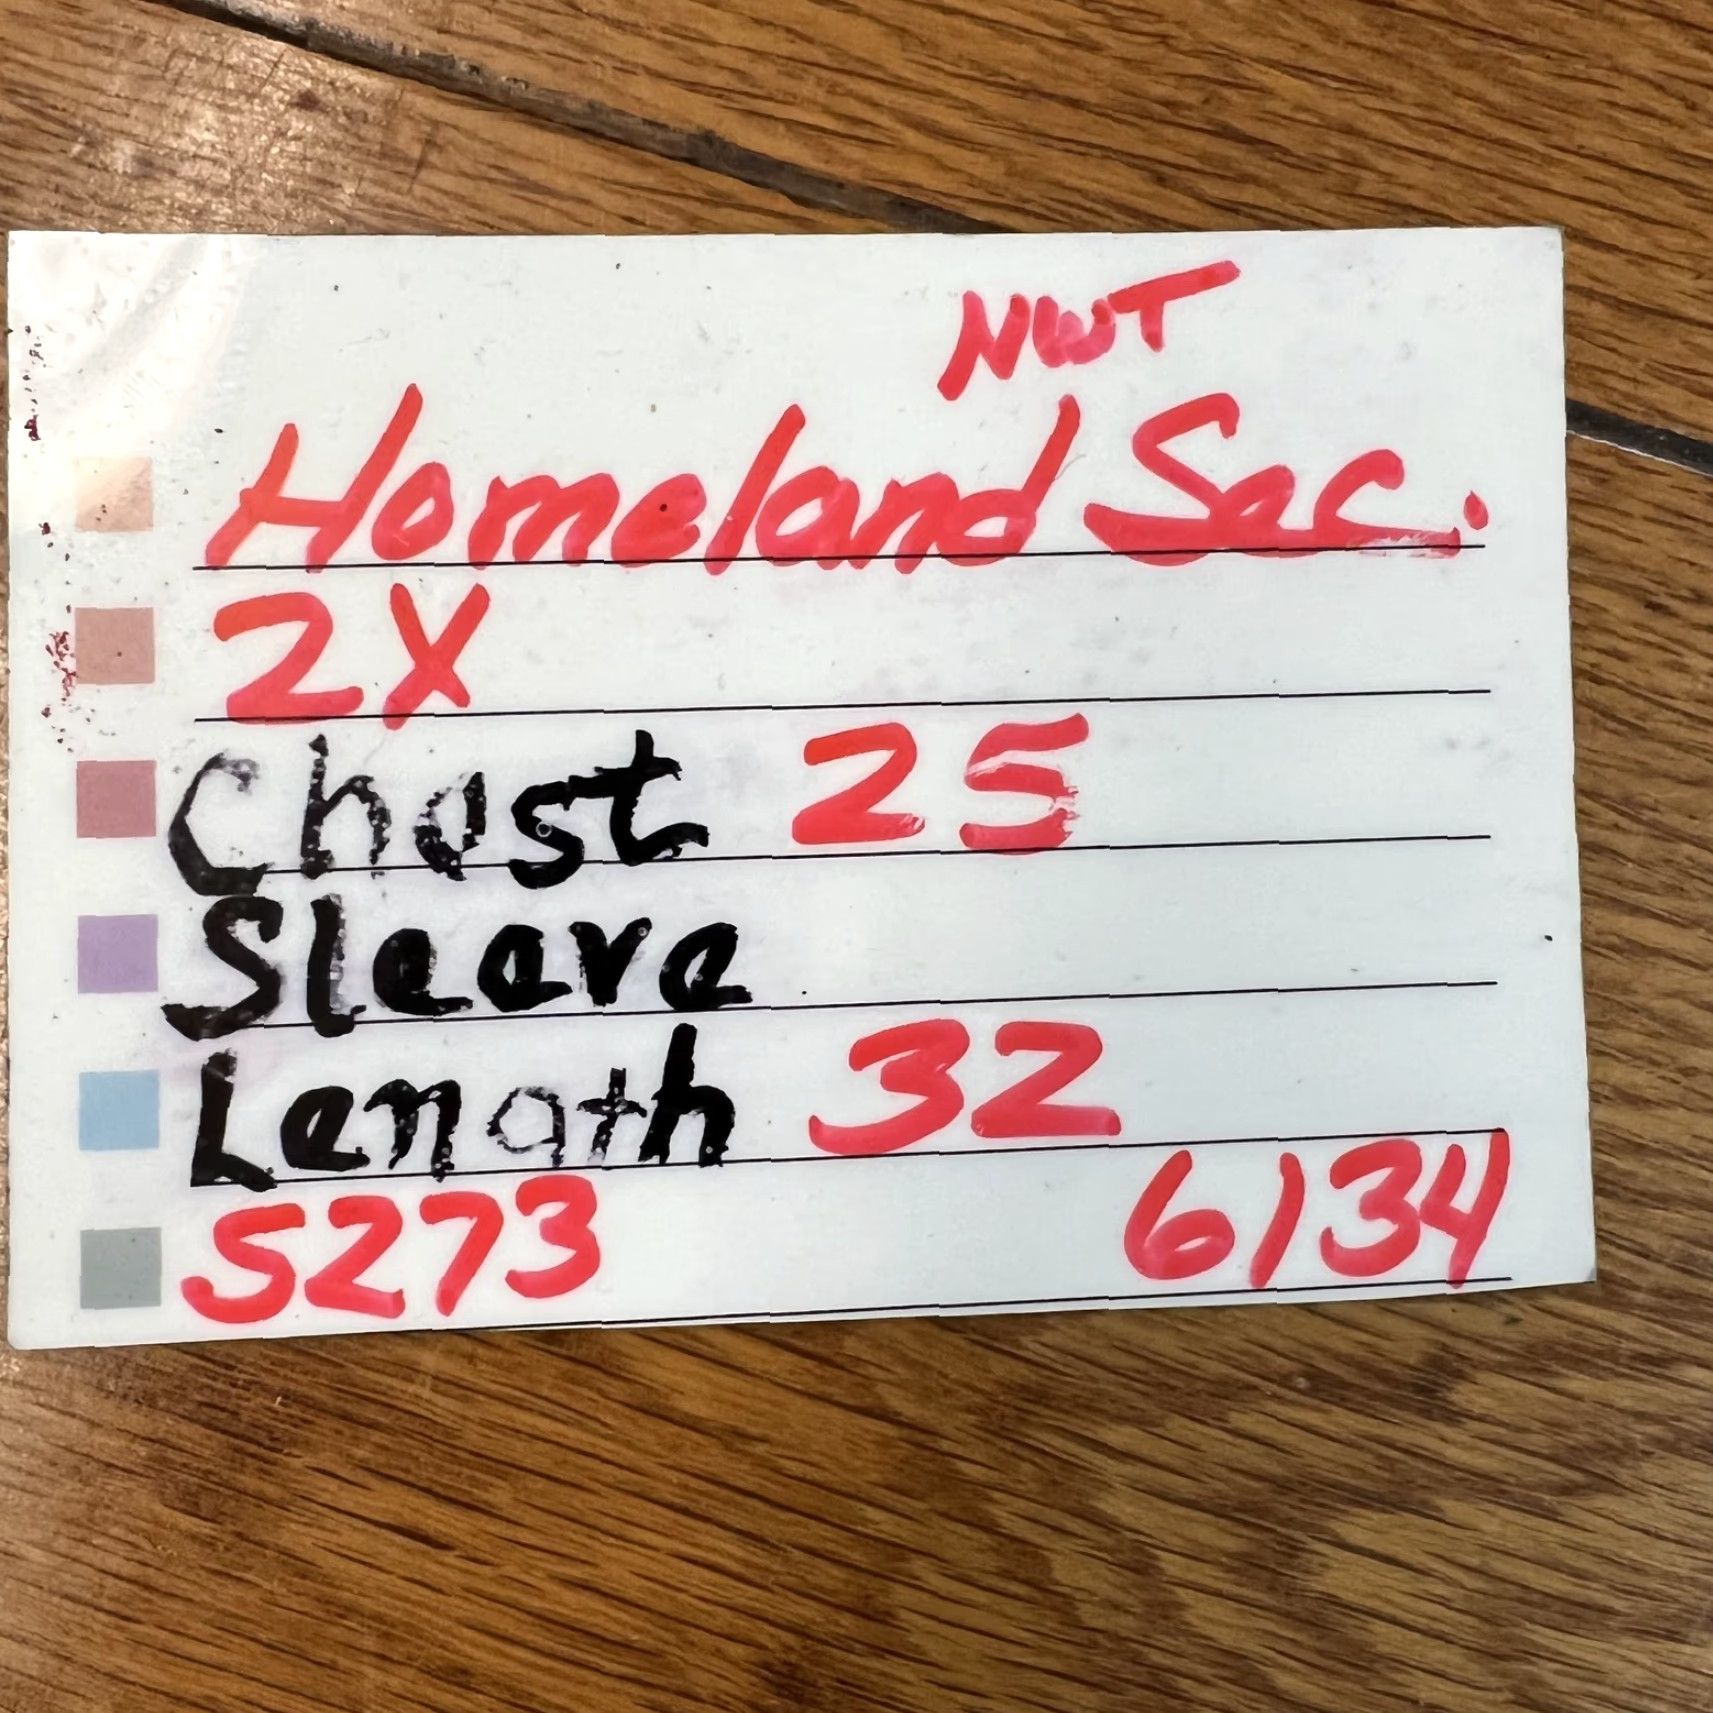 NWT
Homeland Sec.
2X
Chest 25
Sleeve
Length 32
S273 6134